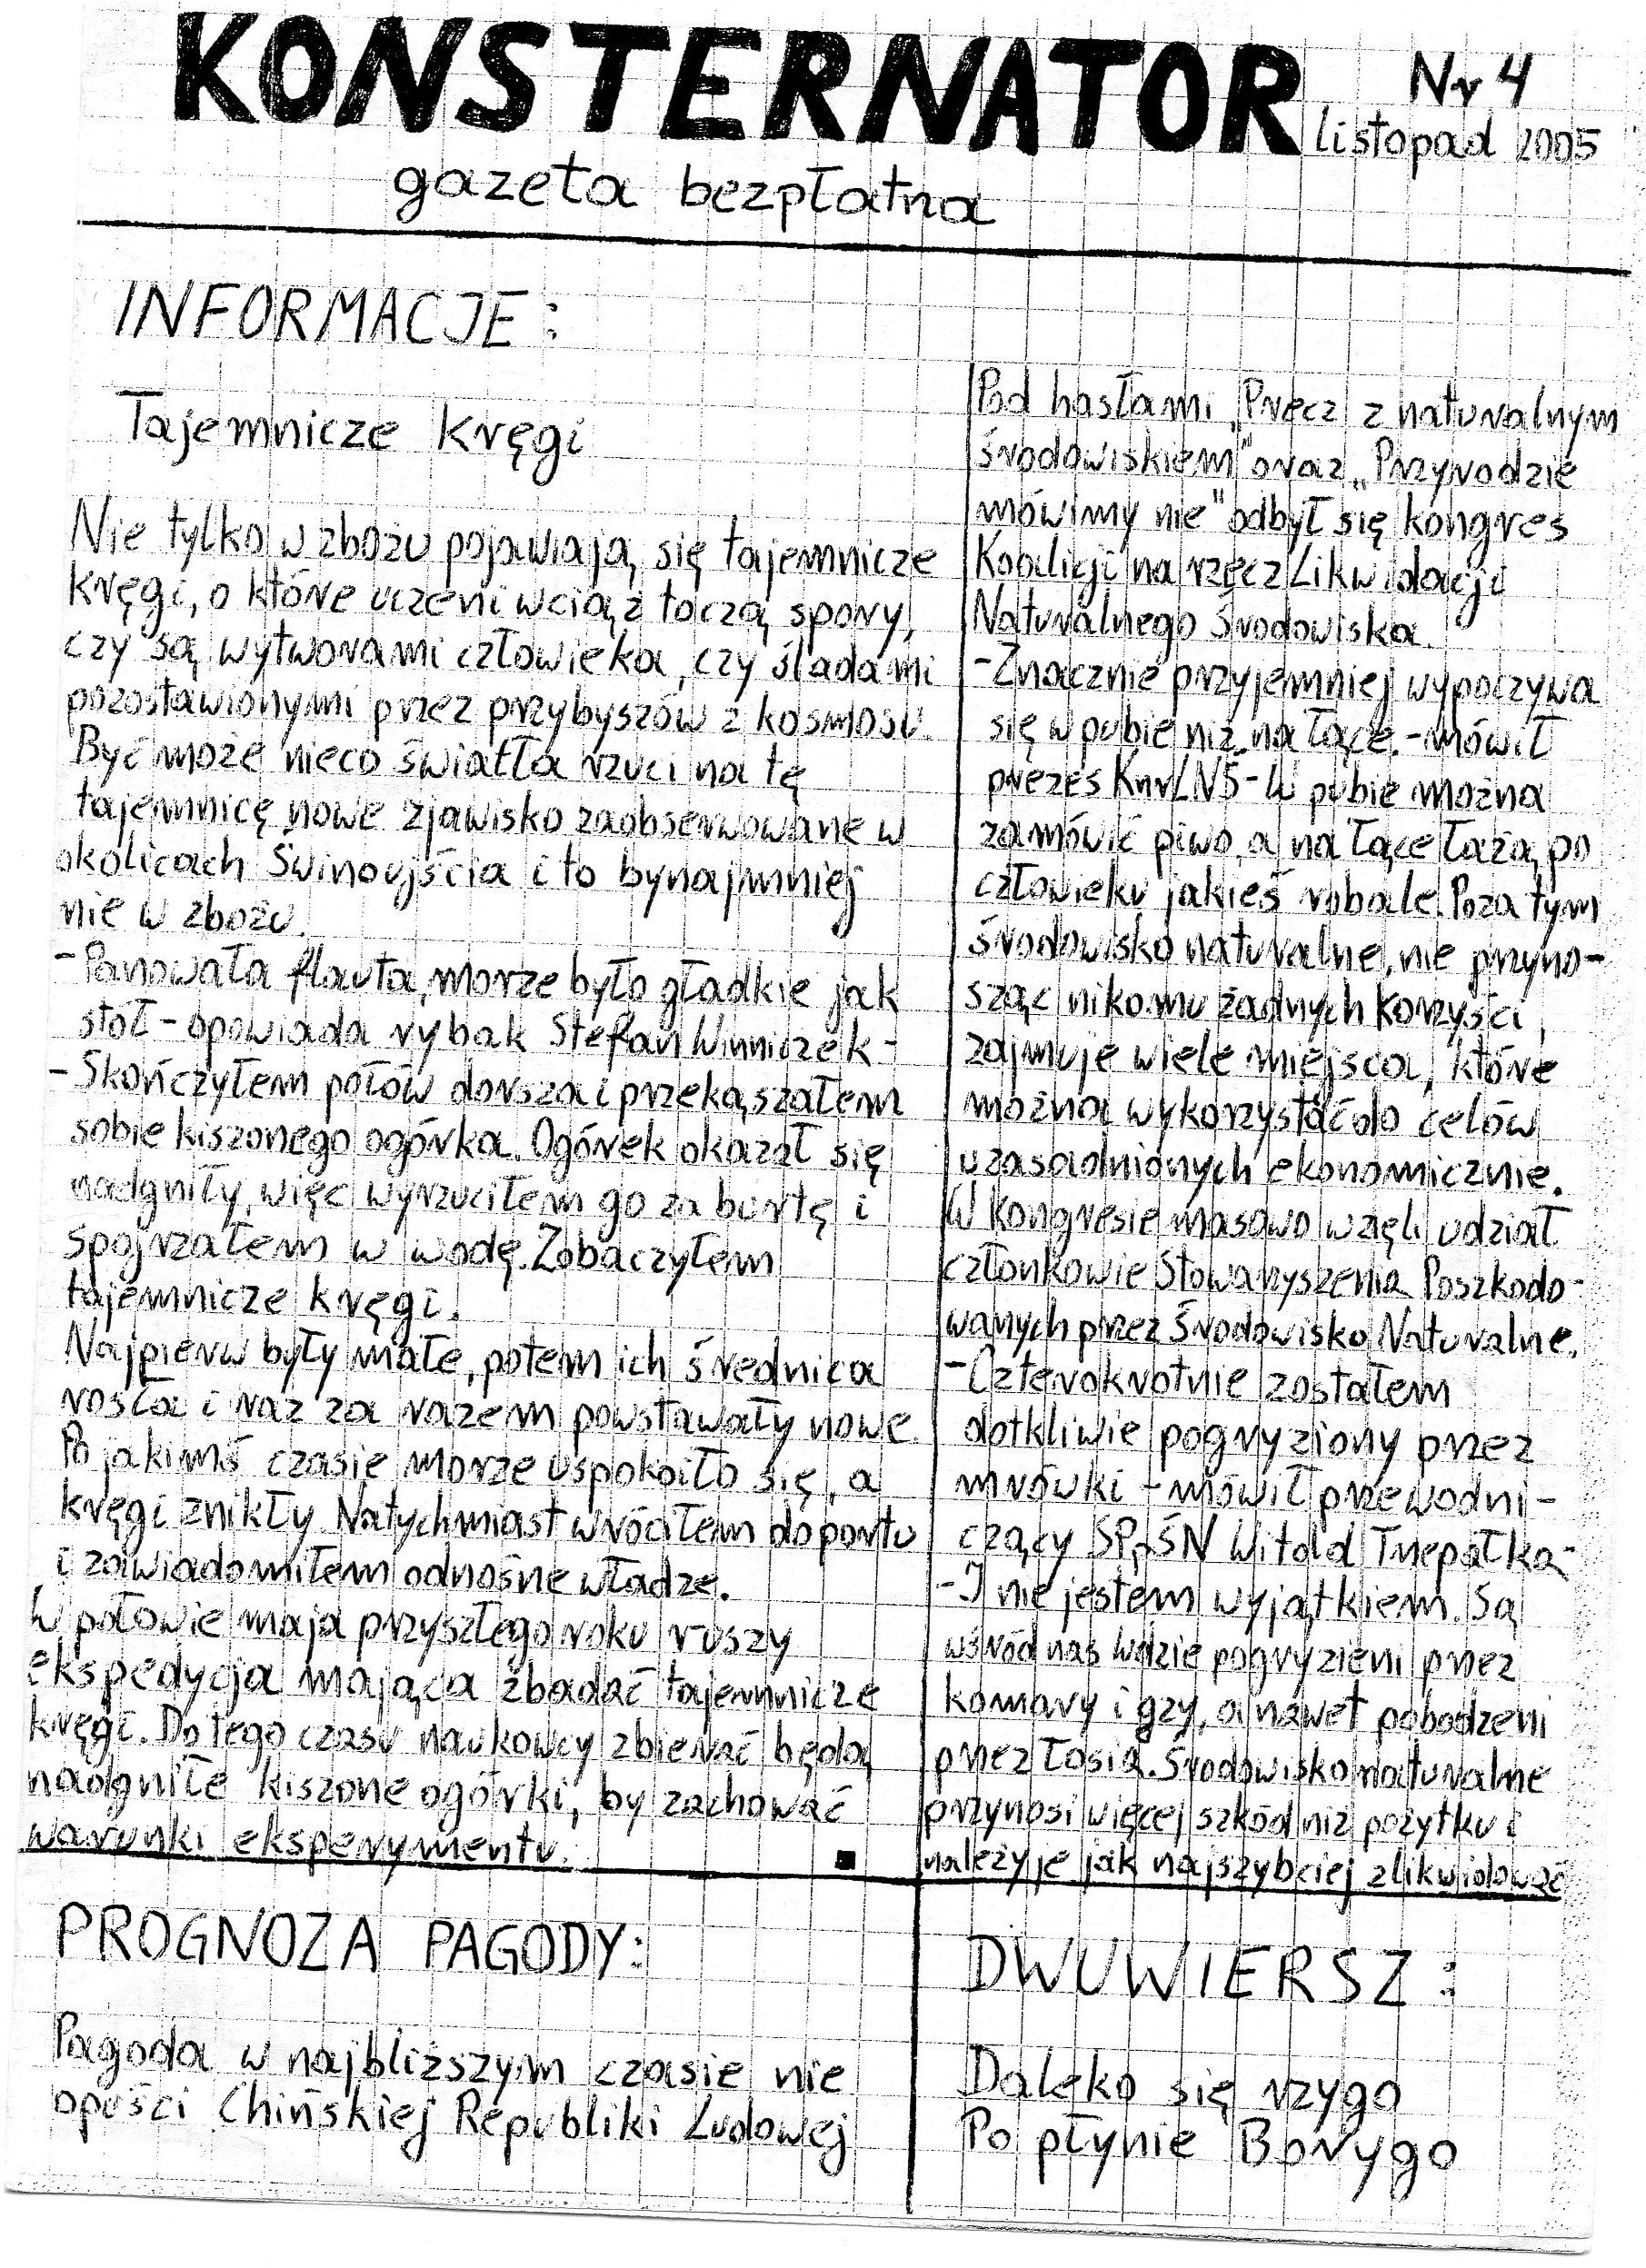 KONSTERNATOR
Nr 4
listopad 2005
gazeta bezpłatna
INFORMACJE:
Tajemnicze kręgi
Nie tylko w zbożu pojawiają się tajemnicze
kręgi, o które uczeni wciąż toczą spory,
czy są wytworami człowieka, czy śladami
pozostawionymi przez przybyszów z kosmosu.
Być może nieco światła rzuci na tę
tajemnicę nowe zjawisko zaobserwowane w
okolicach Świnoujścia i to bynajmniej
nie w zbożu.
- Panowała flauta, morze było gładkie jak
stół - opowiada rybak Stefan Winniczek -
- Skończyłem połów dorsza i przekąszałem
sobie kiszonego ogórka. Ogórek okazał się
nadgniły, więc wyrzuciłem go za burtę i
spojrzałem w wodę. Zobaczyłem
tajemnicze kręgi.
Najpierw były małe, potem ich średnica
rosła i raz za razem powstawały nowe.
Po jakimś czasie morze uspokoiło się, a
kręgi znikły. Natychmiast wróciłem do portu
i zawiadomiłem odnośne władze.
W połowie maja przyszłego roku ruszy
ekspedycja mająca zbadać tajemnicze
kręgi. Do tego czasu naukowcy zbierać będą
nadgniłe kiszone ogórki, by zachować
warunki eksperymentu.
Pod hasłami „Precz z naturalnym
środowiskiem" oraz „Przyrodzie
mówimy nie" odbył się kongres
Koalicji na rzecz Likwidacji
Naturalnego Środowiska.
- Znacznie przyjemniej wypoczywa
się w pubie niż na łące. - mówił
prezes KnrLNŚ - W pubie można
zamówić piwo, a na łące łażą po
człowieku jakieś robale. Poza tym
środowisko naturalne, nie przyno-
sząc nikomu żadnych korzyści,
zajmuje wiele miejsca, które
można wykorzystać do celów
uzasadnionych ekonomicznie.
W kongresie masowo wzięli udział
członkowie Stowarzyszenia Poszkodo-
wanych przez Środowisko Naturalne.
- Czterokrotnie zostałem
dotkliwie pogryziony przez
mrówki - mówił przewodni-
czący SPpŚN Witold Trzepałka -
- I nie jestem wyjątkiem. Są
wśród nas ludzie pogryzieni przez
komary i gzy, a nawet pobodzeni
przez łosia. Środowisko naturalne
przynosi więcej szkód niż pożytku i
należy je jak najszybciej zlikwidować
PROGNOZA PAGODY:
Pagoda w najbliższym czasie nie
opuści Chińskiej Republiki Ludowej
DWUWIERSZ:
Daleko się rzygo
Po płynie Borygo